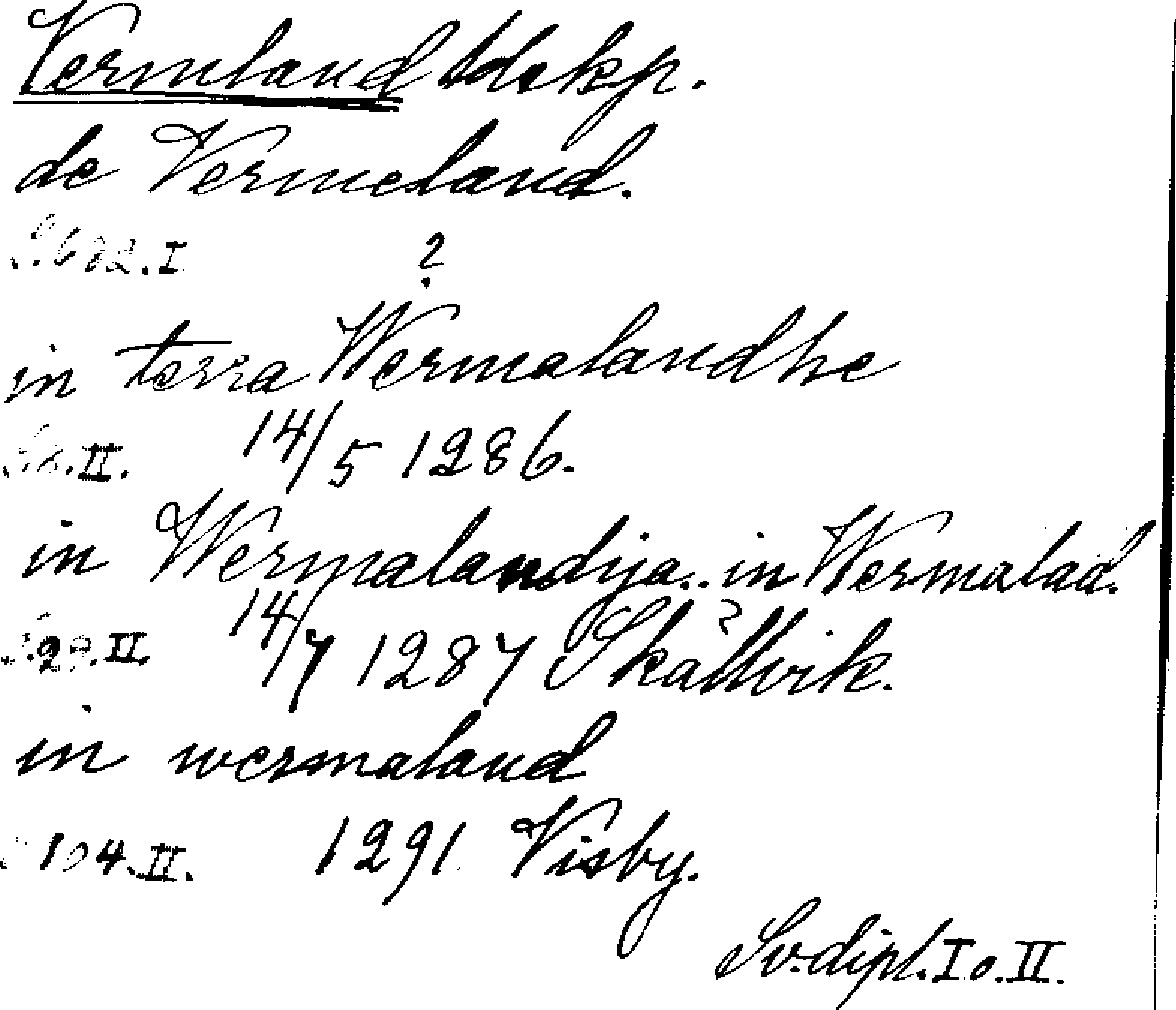 Vermland ldskp.
de Vermeland.
S. 682. I ?
in terra Wermalandhe
II. 14/5 1286.
in Wermalandija. in Wermalad.
S. 29. II 14/7 1287 Skällvik. ?
in wermaland
S 104. II. 1291 Visby.
Sv. dipl. I o. II.